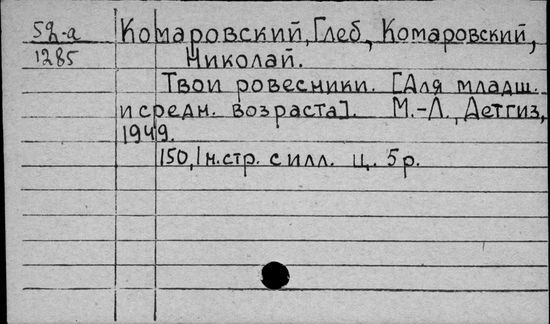 59-а Комаровский, Глеб, Комаровский,
1285 Николай.
Твои ровесники. [Для младш.
и средн. возраста]. М.-Л., Детгиз,
1949.
150, 1 н. стр. с илл. ц. 5 р.